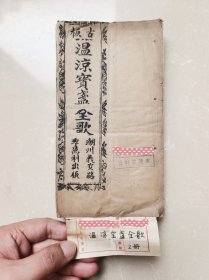 古板
温涼寶盞全歌
潮州義安路
李萬利出版
温涼宝盏全歌
2册